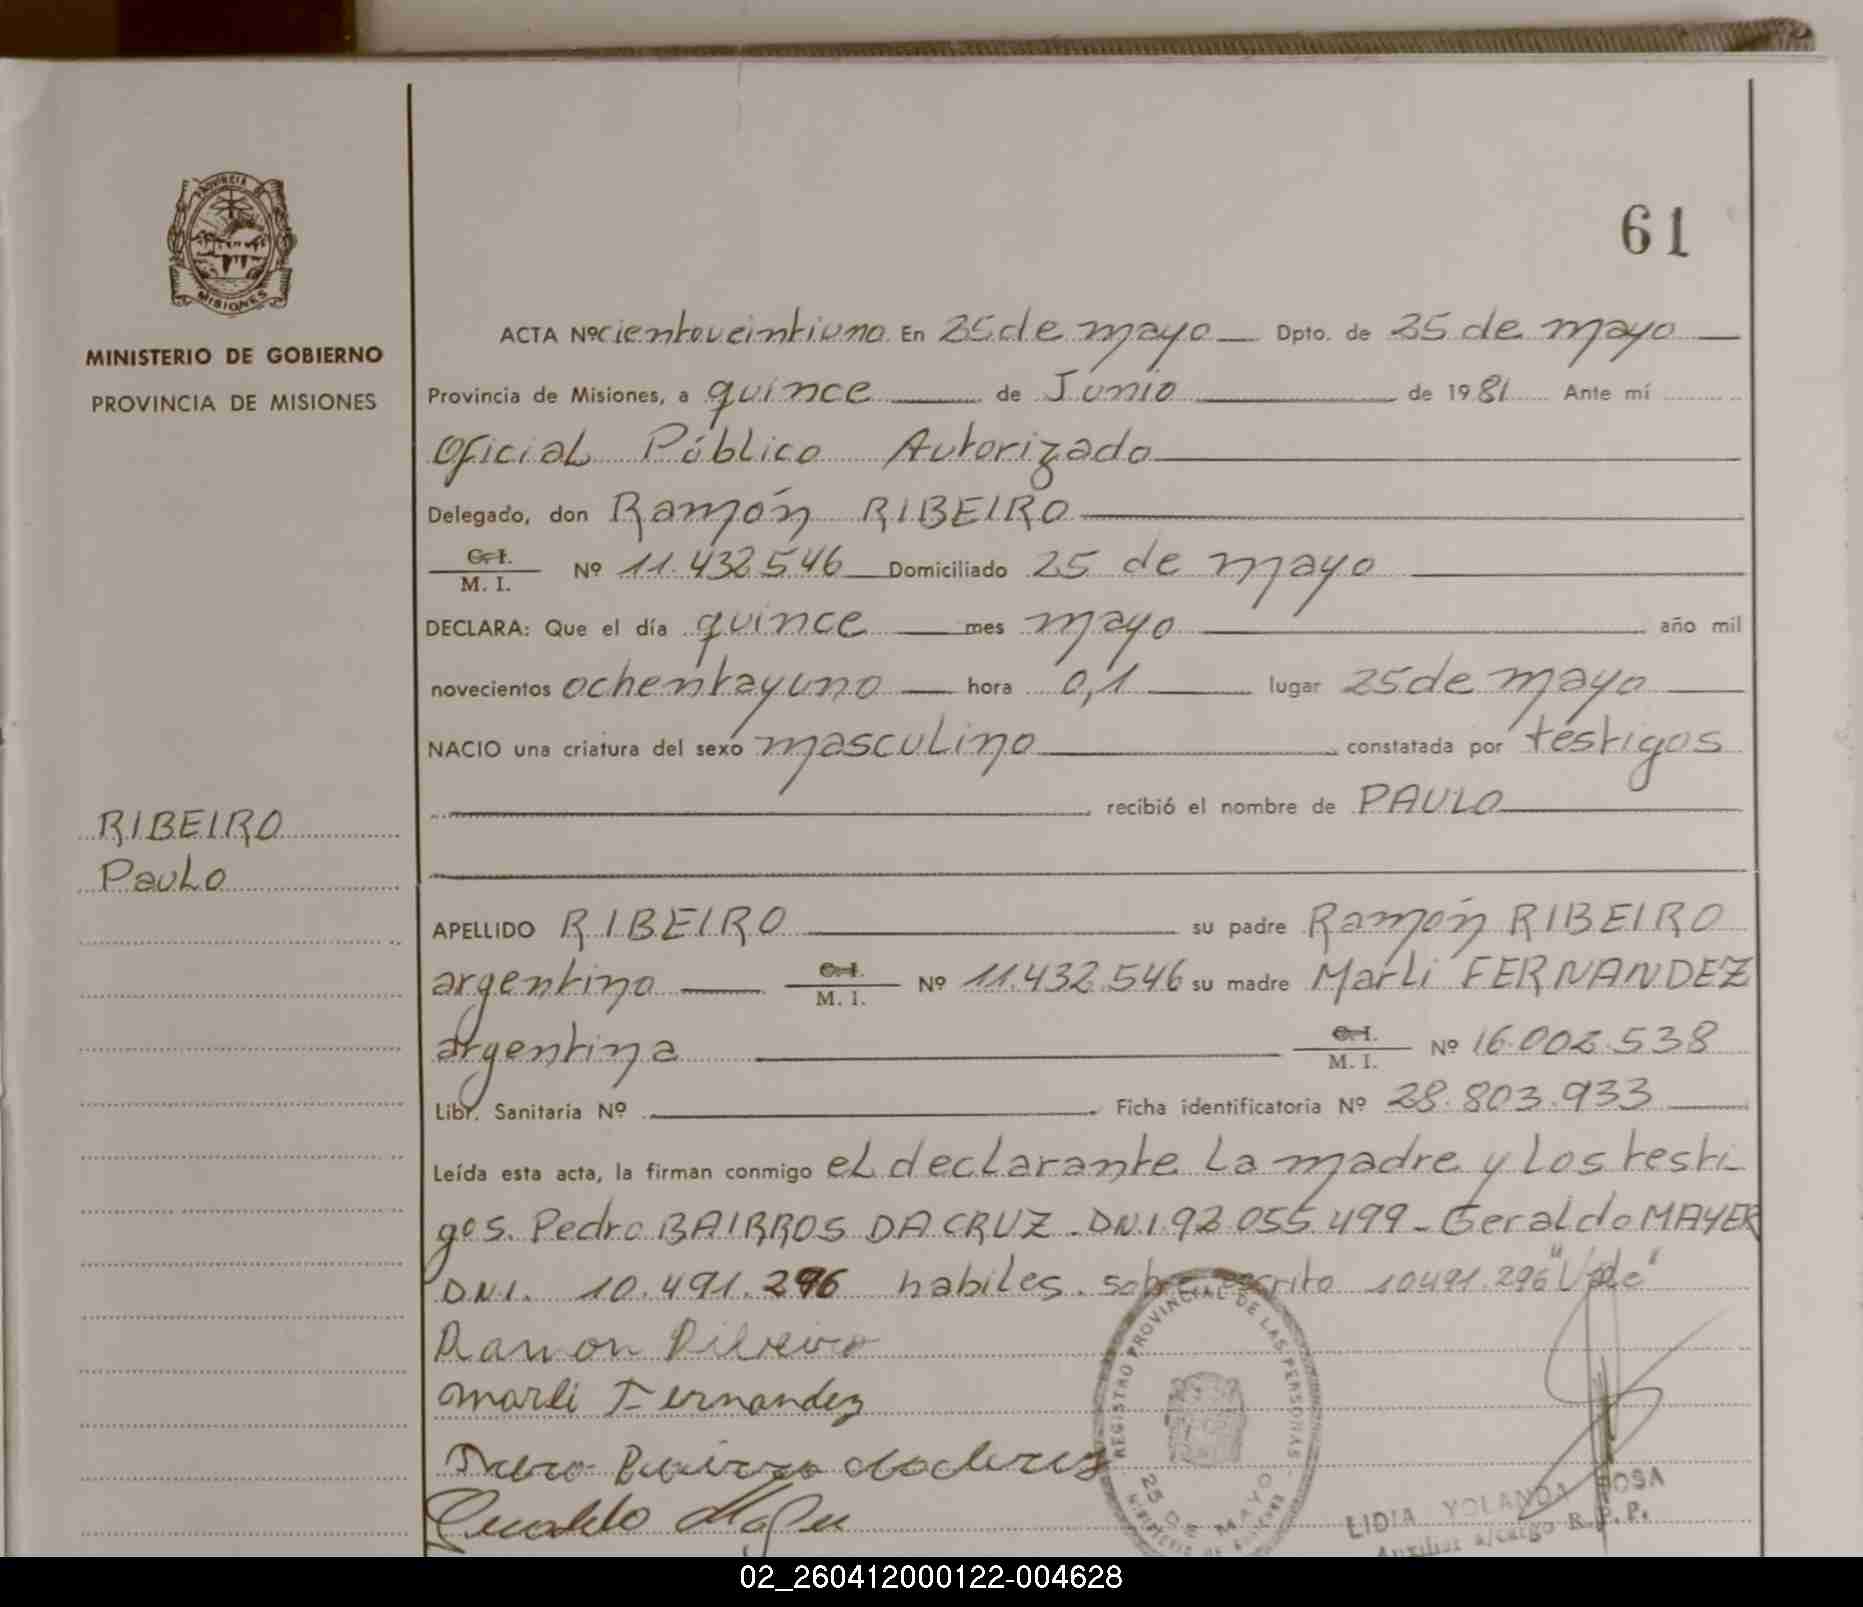 PROVINCIA DE
MISIONES
MINISTERIO DE GOBIERNO
PROVINCIA DE MISIONES
61
ACTA Nº cientoveintiuno En 25 de mayo Dpto. de 25 de mayo
Provincia de Misiones, a quince de Junio de 1981 Ante mí
Oficial Público Autorizado
Delegado, don Ramón RIBEIRO
C. I.
M. I. Nº 11.432.546 Domiciliado 25 de mayo
DECLARA: Que el día quince mes mayo año mil
novecientos ochentayuno hora 0,1 lugar 25 de mayo
NACIO una criatura del sexo masculino constatada por testigos
recibió el nombre de PAULO
RIBEIRO
Paulo
APELLIDO RIBEIRO su padre Ramón RIBEIRO
argentino C. I. M. I. Nº 11.432.546 su madre Marli FERNANDEZ
argentina C. I. M. I. Nº 16.002.538
Libr. Sanitaria Nº Ficha identificatoria Nº 28.803.933
Leída esta acta, la firman conmigo el declarante la madre y los testi
gos. Pedro BAIRROS DA CRUZ - DNI. 92.055.499 - Geraldo MAYER
DNI. 10.491.296 habiles. sobre escrito 10491.296 "Vale"
Ramon Ribeiro
Marli Fernandez
Geraldo Mayer
REGISTRO PROVINCIAL DE LAS PERSONAS
25 DE MAYO
MINISTERIO DE GOBIERNO
LIDIA YOLANDA SOSA
Auxiliar a/cargo R. P. P.
02_260412000122-004628